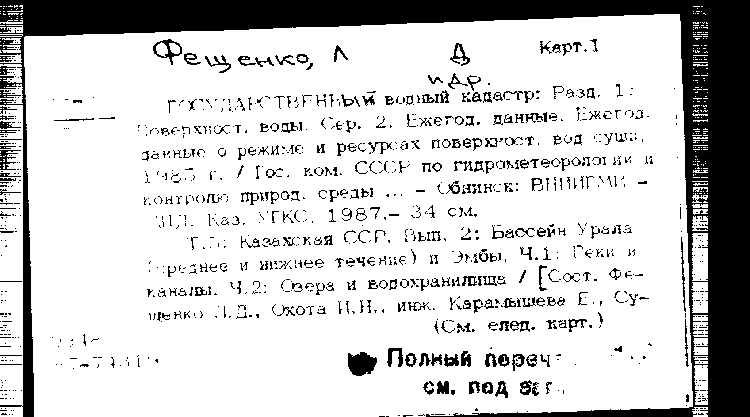 Фещенко, Л Д Карт.1
и др.
ГОСУДАРСТВЕННЫЙ водный кадастр: Разд. 1:
Поверхност. воды. Сер. 2. Ежегод. данные. Ежегод.
данные о режиме и ресурсах поверхност. вод суши,
1985 г. / Гос. ком. СССР по гидрометеорологии и
контролю природ. среды ... - Обнинск: ВНИИГМИ -
Каз. УГКС, 1987.- 34 см.
Казахская ССР. Вып. 2: Бассейн Урала
(среднее и нижнее течение) и Эмбы. Ч.1: Реки и
каналы. Ч.2: Озера и водохранилища / [Сост. Фе-
щенко Л.Д., Охота Н.Н., инж. Карамышева Е., Су-
(См. след. карт.)
Полный
см. под